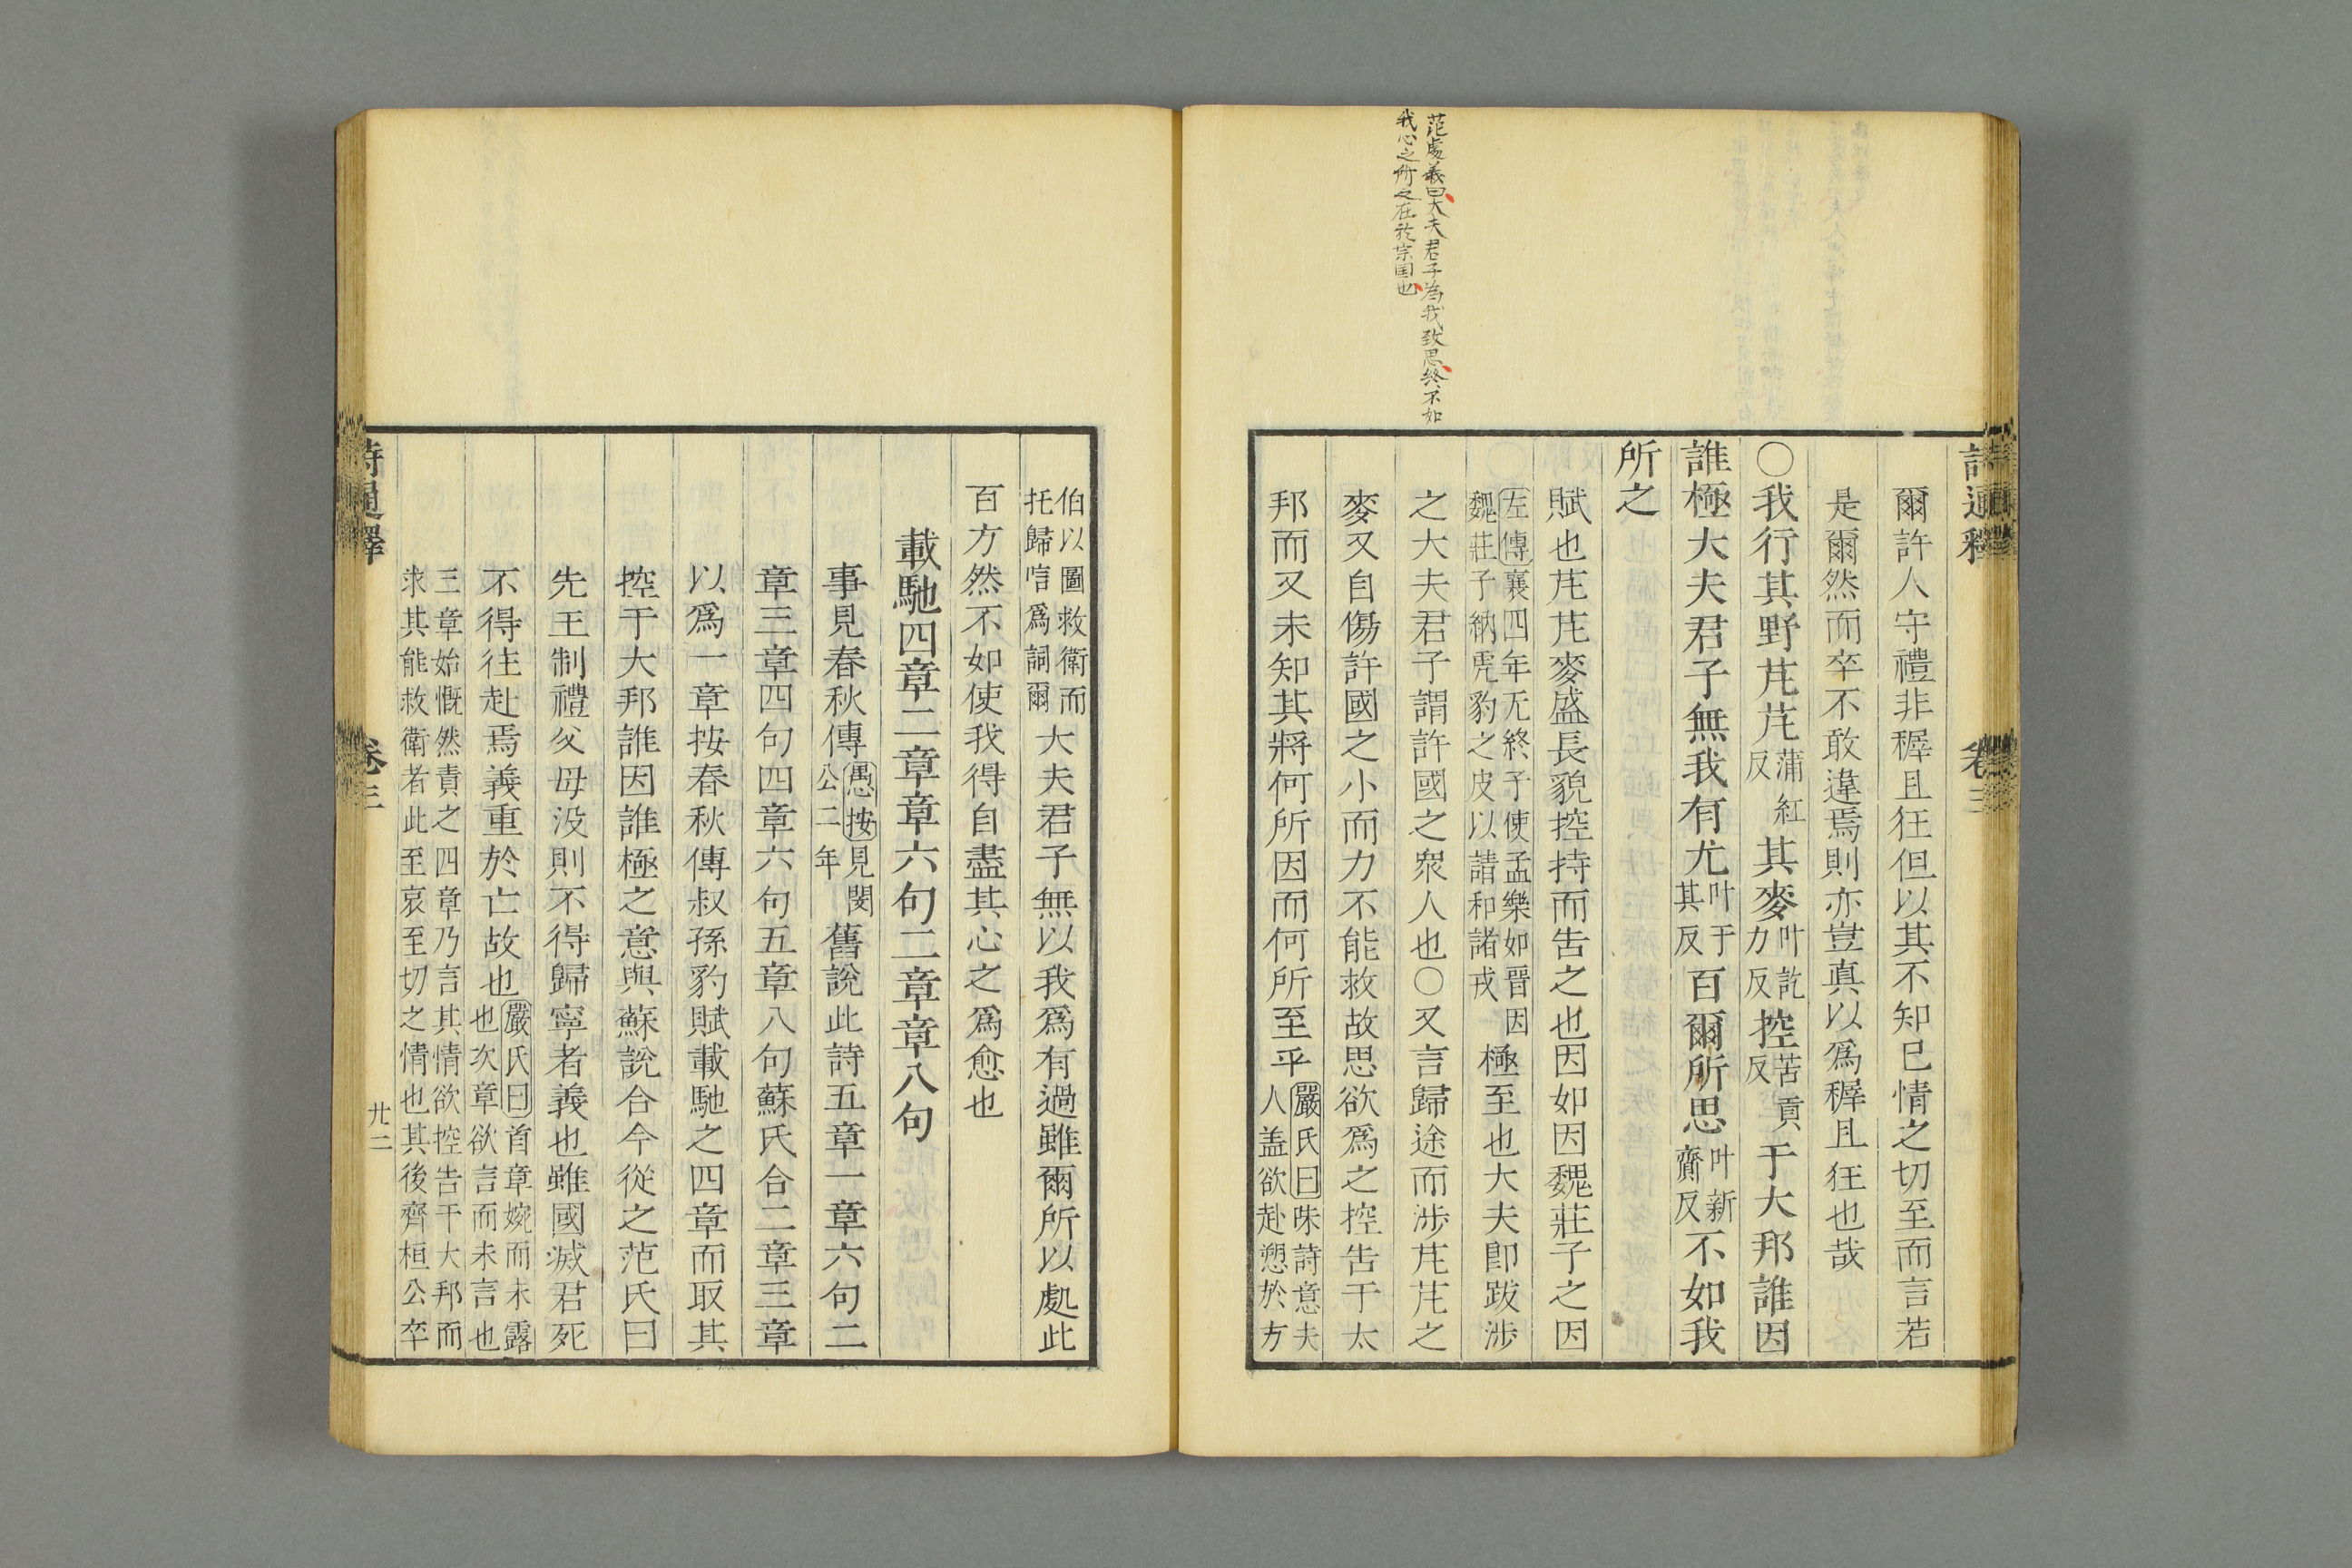 范處義曰大夫君子為我致思終不如
我心之所之在於宗国也
詩通釋 卷三
爾許人守禮非穉且狂但以其不知巳情之切至而言若
是爾然而卒不敢違焉則亦豈真以爲穉且狂也哉
○我行其野芃芃蒲紅反其麥叶訖力反控苦貢反于大邦誰因
誰極大夫君子無我有尤叶于其反百爾所思叶新齎反不如我
所之
賦也芃芃麥盛長貌控持而告之也因如因魏莊子之因
左傳襄四年无終子使孟樂如晉因魏莊子納虎豹之皮以請和諸戎極至也大夫即跋涉
之大夫君子謂許國之衆人也○又言歸途而涉芃芃之
麥又自傷許國之小而力不能救故思欲爲之控告于大
邦而又未知其將何所因而何所至乎嚴氏曰味詩意夫人盖欲赴愬於方
伯以圖救衛而托歸唁爲詞爾大夫君子無以我爲有過雖爾所以處此
百方然不如使我得自盡其心之爲愈也
載馳四章二章章六句二章章八句
事見春秋傳愚按見閔公二年舊說此詩五章一章六句二
章三章四句四章六句五章八句蘇氏合二章三章
以爲一章按春秋傳叔孫豹賦載馳之四章而取其
控于大邦誰因誰極之意與蘇說合今從之范氏曰
先王制禮父母没則不得歸寧者義也雖國滅君死
不得往赴焉義重於亡故也嚴氏曰首章婉而未露也次章欲言而未言也
三章始慨然責之四章乃言其情欲控告于大邦而求其能救衛者此至哀至切之情也其後齊桓公卒
詩通釋 卷三 廿二